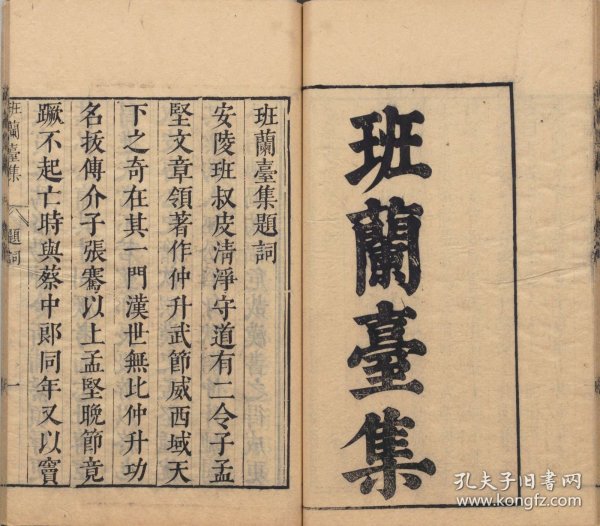 班蘭臺集
班蘭臺集題詞
安陵班叔皮清淨守道有二令子孟
堅文章領著作仲升武節威西域天
下之奇在其一門漢世無比仲升功
名扳傅介子張騫以上孟堅晚節竟
蹶不起亡時與蔡中郎同年又以竇
班蘭臺集
題詞
一
孔夫子旧书网
www.kongfz.com